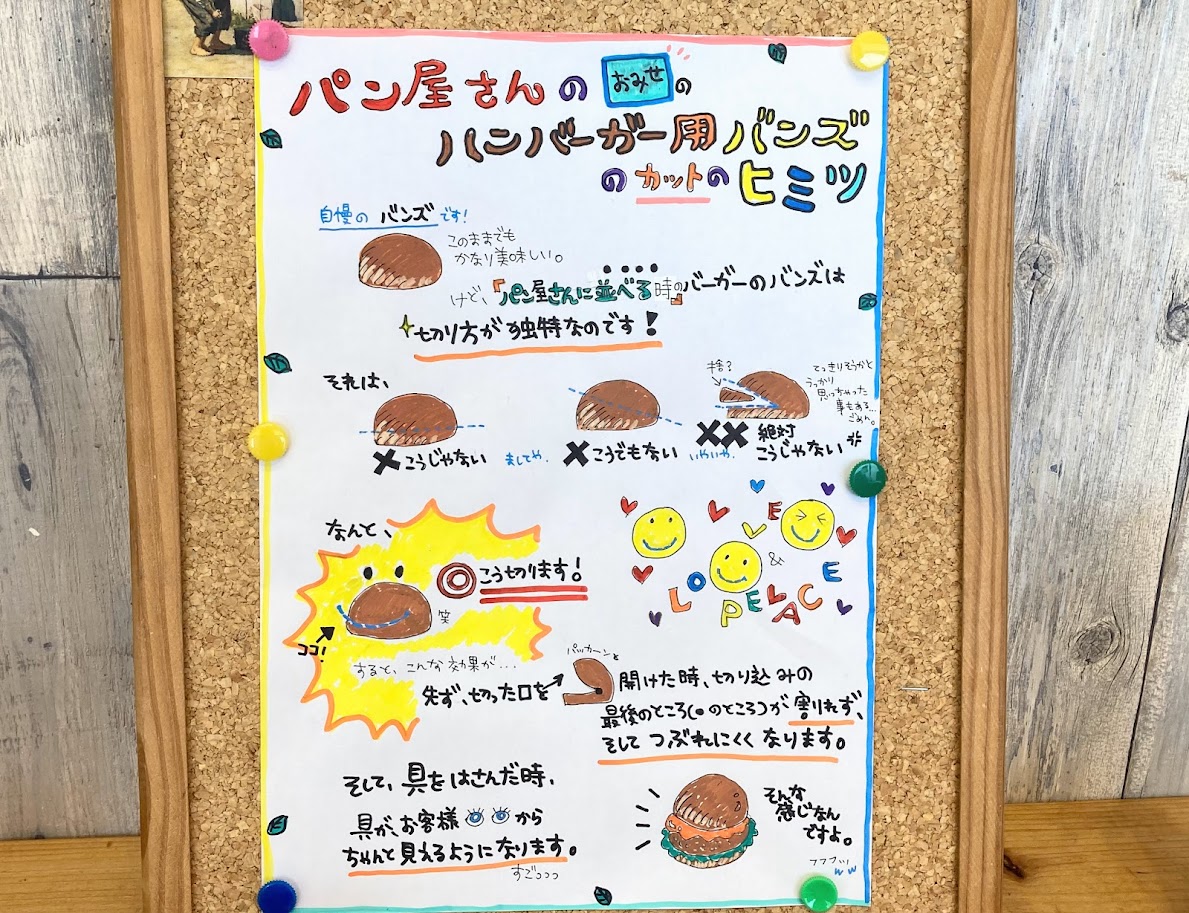 パン屋さんのおみせの
ハンバーガー用バンズ
のカットのヒミツ
自慢のバンズです!
このままでも
かなり美味しい。
けど、『パン屋さんに並べる時の』バーガーのバンズは
切り方が独特なのです!
それは、
捨?
てっきりそうかと
うっかり
思っちゃった
事もある...
ごめん。
×こうじゃない
ましてや、
×こうでもない
いやいや、
××絶対
こうじゃない
なんと、
◎こう切ります!
笑
ココ!
LOVE
&
PEACE
すると、こんな効果が...
先ず、切った口を
パッカーンと
開けた時、切り込みの
最後のところ(●のところ)が割れず、
そしてつぶれにくくなります。
そして、具をはさんだ時、
具が、お客様から
ちゃんと見えるようになります。
すごっっっ
そんな
感じなん
ですよ。
フフフッッ
ww